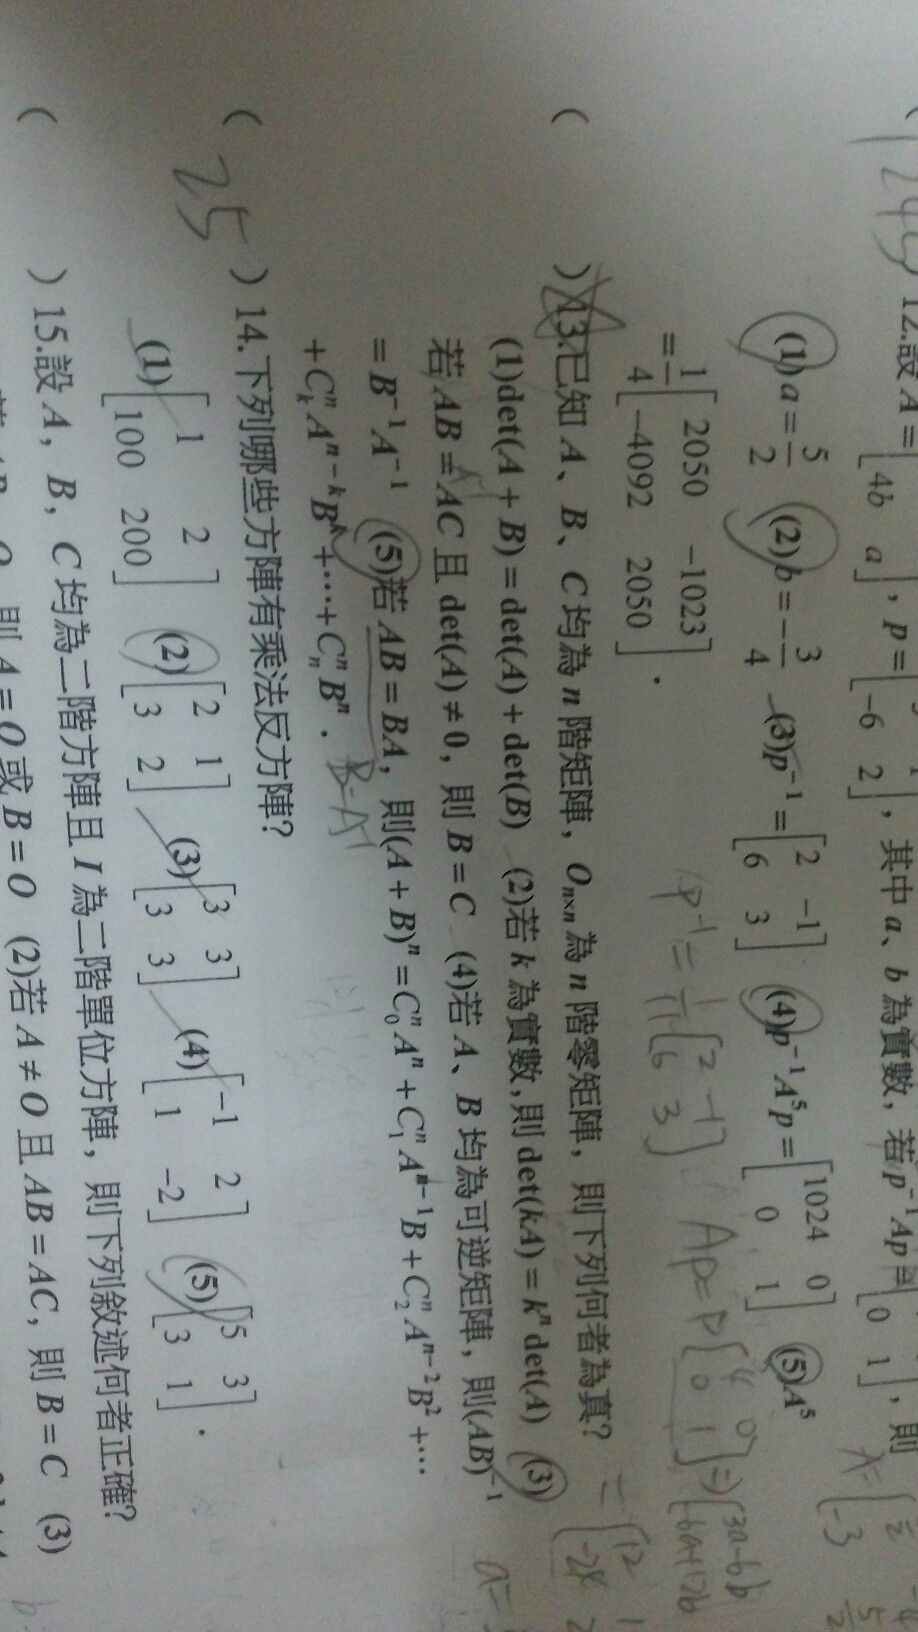 12.設 A = [ 4b a ], p = [ -6 2 ], 其中 a、b 為實數, 若 p⁻¹Ap = [ 0 1 ], 則
(1) a = 5/2 (2) b = -3/4 (3) p⁻¹ = [ 2 -1 ; 6 3 ] (4) p⁻¹A⁵p = [ 1024 0 ; 0 1 ] (5) A⁵
= 1/4 [ 2050 -1023 ; -4092 2050 ].
( ) 13.已知 A、B、C 均為 n 階矩陣, Oₙₓₙ 為 n 階零矩陣, 則下列何者為真?
(1)det(A + B) = det(A) + det(B) (2)若 k 為實數, 則 det(kA) = kⁿ det(A) (3)
若 AB = AC 且 det(A) ≠ 0, 則 B = C (4)若 A、B 均為可逆矩陣, 則(AB)⁻¹
= B⁻¹A⁻¹ (5)若 AB = BA, 則(A + B)ⁿ = C₀ⁿAⁿ + C₁ⁿAⁿ⁻¹B + C₂ⁿAⁿ⁻²B² + ⋯
+ CₖⁿAⁿ⁻ᵏBᵏ + ⋯ + CₙⁿBⁿ.
B=A⁻¹
p⁻¹ = [ 2 -1 ; 6 3 ]
25
( ) 14.下列哪些方陣有乘法反方陣?
(1) [ 1 2 ; 100 200 ] (2) [ 2 1 ; 3 2 ] (3) [ 3 3 ; 3 3 ] (4) [ -1 2 ; 1 -2 ] (5) [ 5 3 ; 3 1 ].
( ) 15.設 A, B, C 均為二階方陣且 I 為二階單位方陣, 則下列敘述何者正確?
則 A = O 或 B = O (2)若 A ≠ O 且 AB = AC, 則 B = C (3)